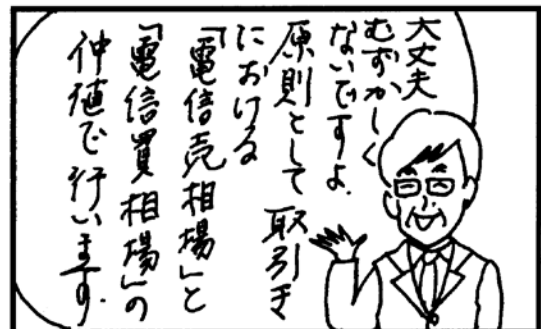 大丈夫
むずかしく
ないですよ.
原則として取引き
における
「電信売相場」と
「電信買相場」の
仲値で行います.